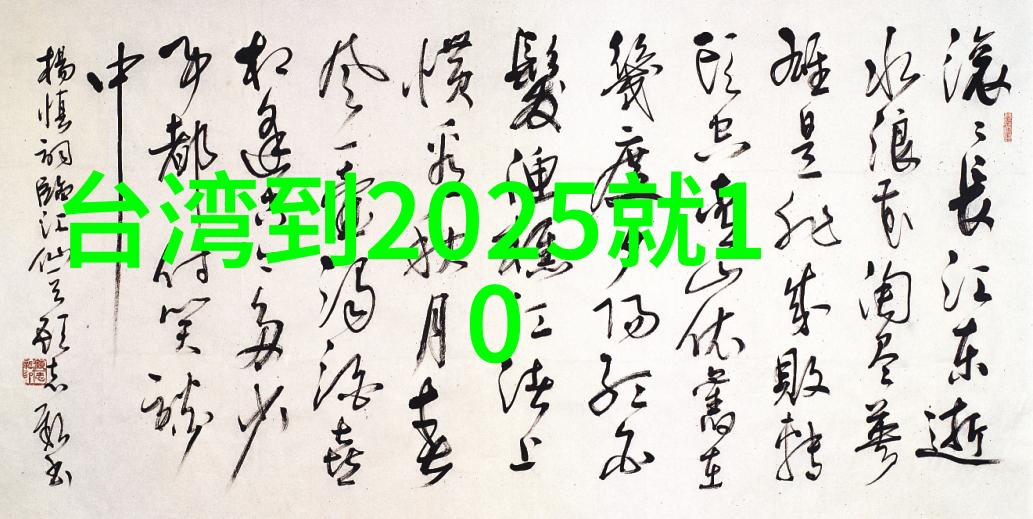 台湾到2025就1
0
滚〻長江东逝
水浪花淘尽英
雄是非成敗轉
头空青山依舊在
幾度夕阳红白
髮渔樵江渚上
惯看秋月春
风一壶濁酒喜
相逢古今多少
事都付笑談
中
楊慎詞臨江仙